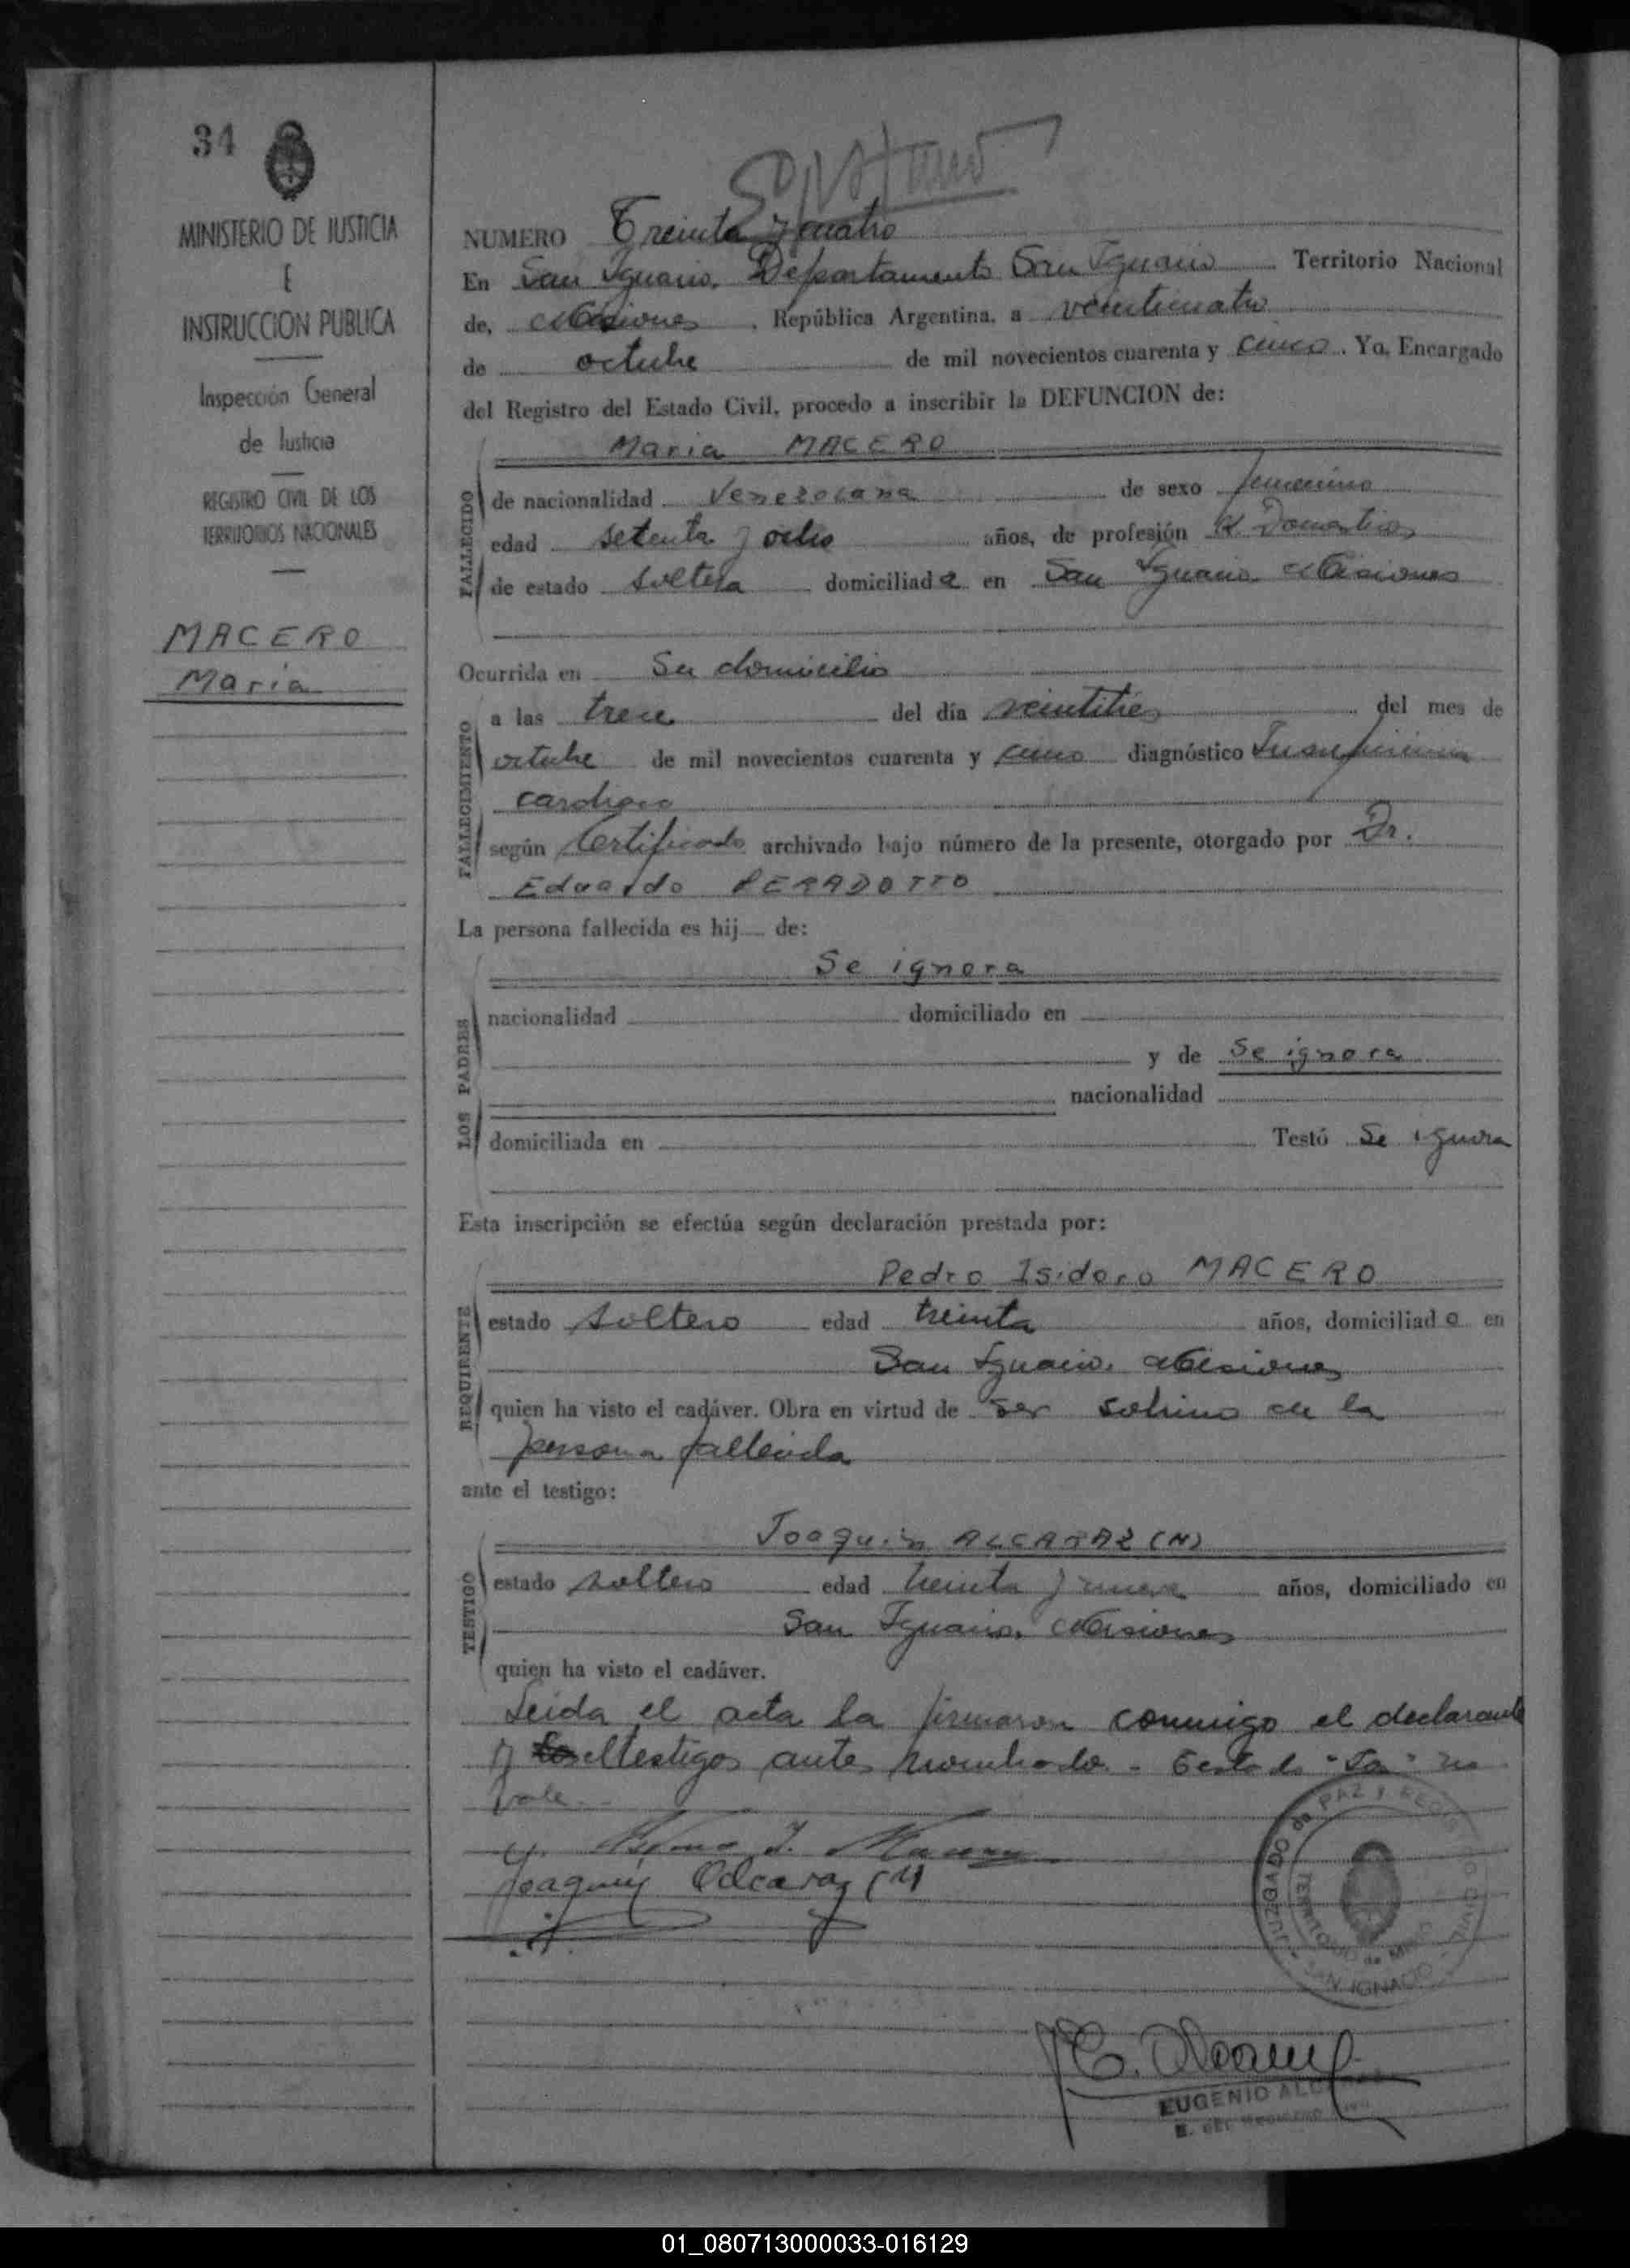 34
MINISTERIO DE JUSTICIA
E
INSTRUCCION PUBLICA
Inspección General
de Justicia
REGISTRO CIVIL DE LOS
TERRITORIOS NACIONALES
MACERO
Maria
NUMERO Treinta y cuatro
En San Ignacio, Departamento San Ignacio Territorio Nacional
de, Misiones, República Argentina, a veinticuatro
de octubre de mil novecientos cuarenta y cinco. Yo, Encargado
del Registro del Estado Civil, procedo a inscribir la DEFUNCION de:
Maria MACERO
FALLECIDO
de nacionalidad Venezolana de sexo femenino
edad setenta y ocho años, de profesión Q. Domesticos
de estado soltera domiciliada en San Ignacio Misiones
Ocurrida en Su domicilio
FALLECIMIENTO
a las trece del día veintitres del mes de
octubre de mil novecientos cuarenta y cinco diagnóstico Insuficiencia
cardiaca
según Certificado archivado bajo número de la presente, otorgado por Dr.
Eduardo PERADOTTO
La persona fallecida es hij de:
Se ignora
LOS PADRES
nacionalidad domiciliado en
y de Se ignora
nacionalidad
domiciliada en Testó Se ignora
Esta inscripción se efectúa según declaración prestada por:
Pedro Isidoro MACERO
REQUIRENTE
estado soltero edad treinta años, domiciliado en
San Ignacio. Misiones
quien ha visto el cadáver. Obra en virtud de ser sobrino de la
persona fallecida
ante el testigo:
Joaquin ALCARAZ (H)
TESTIGO
estado soltero edad treinta y nueve años, domiciliado en
San Ignacio. Misiones
quien ha visto el cadáver.
Leida el acta la firmaron conmigo el declarante
y los el testigos antes nombrado - Testado "los" no
vale.
Joaquin Alcaraz (H)
JUZGADO de PAZ y REGISTRO CIVIL
TERRITORIO de MISIONES
SAN IGNACIO
E. Alcaraz
EUGENIO ALCARAZ
E. del REGISTRO CIVIL
01_080713000033-016129